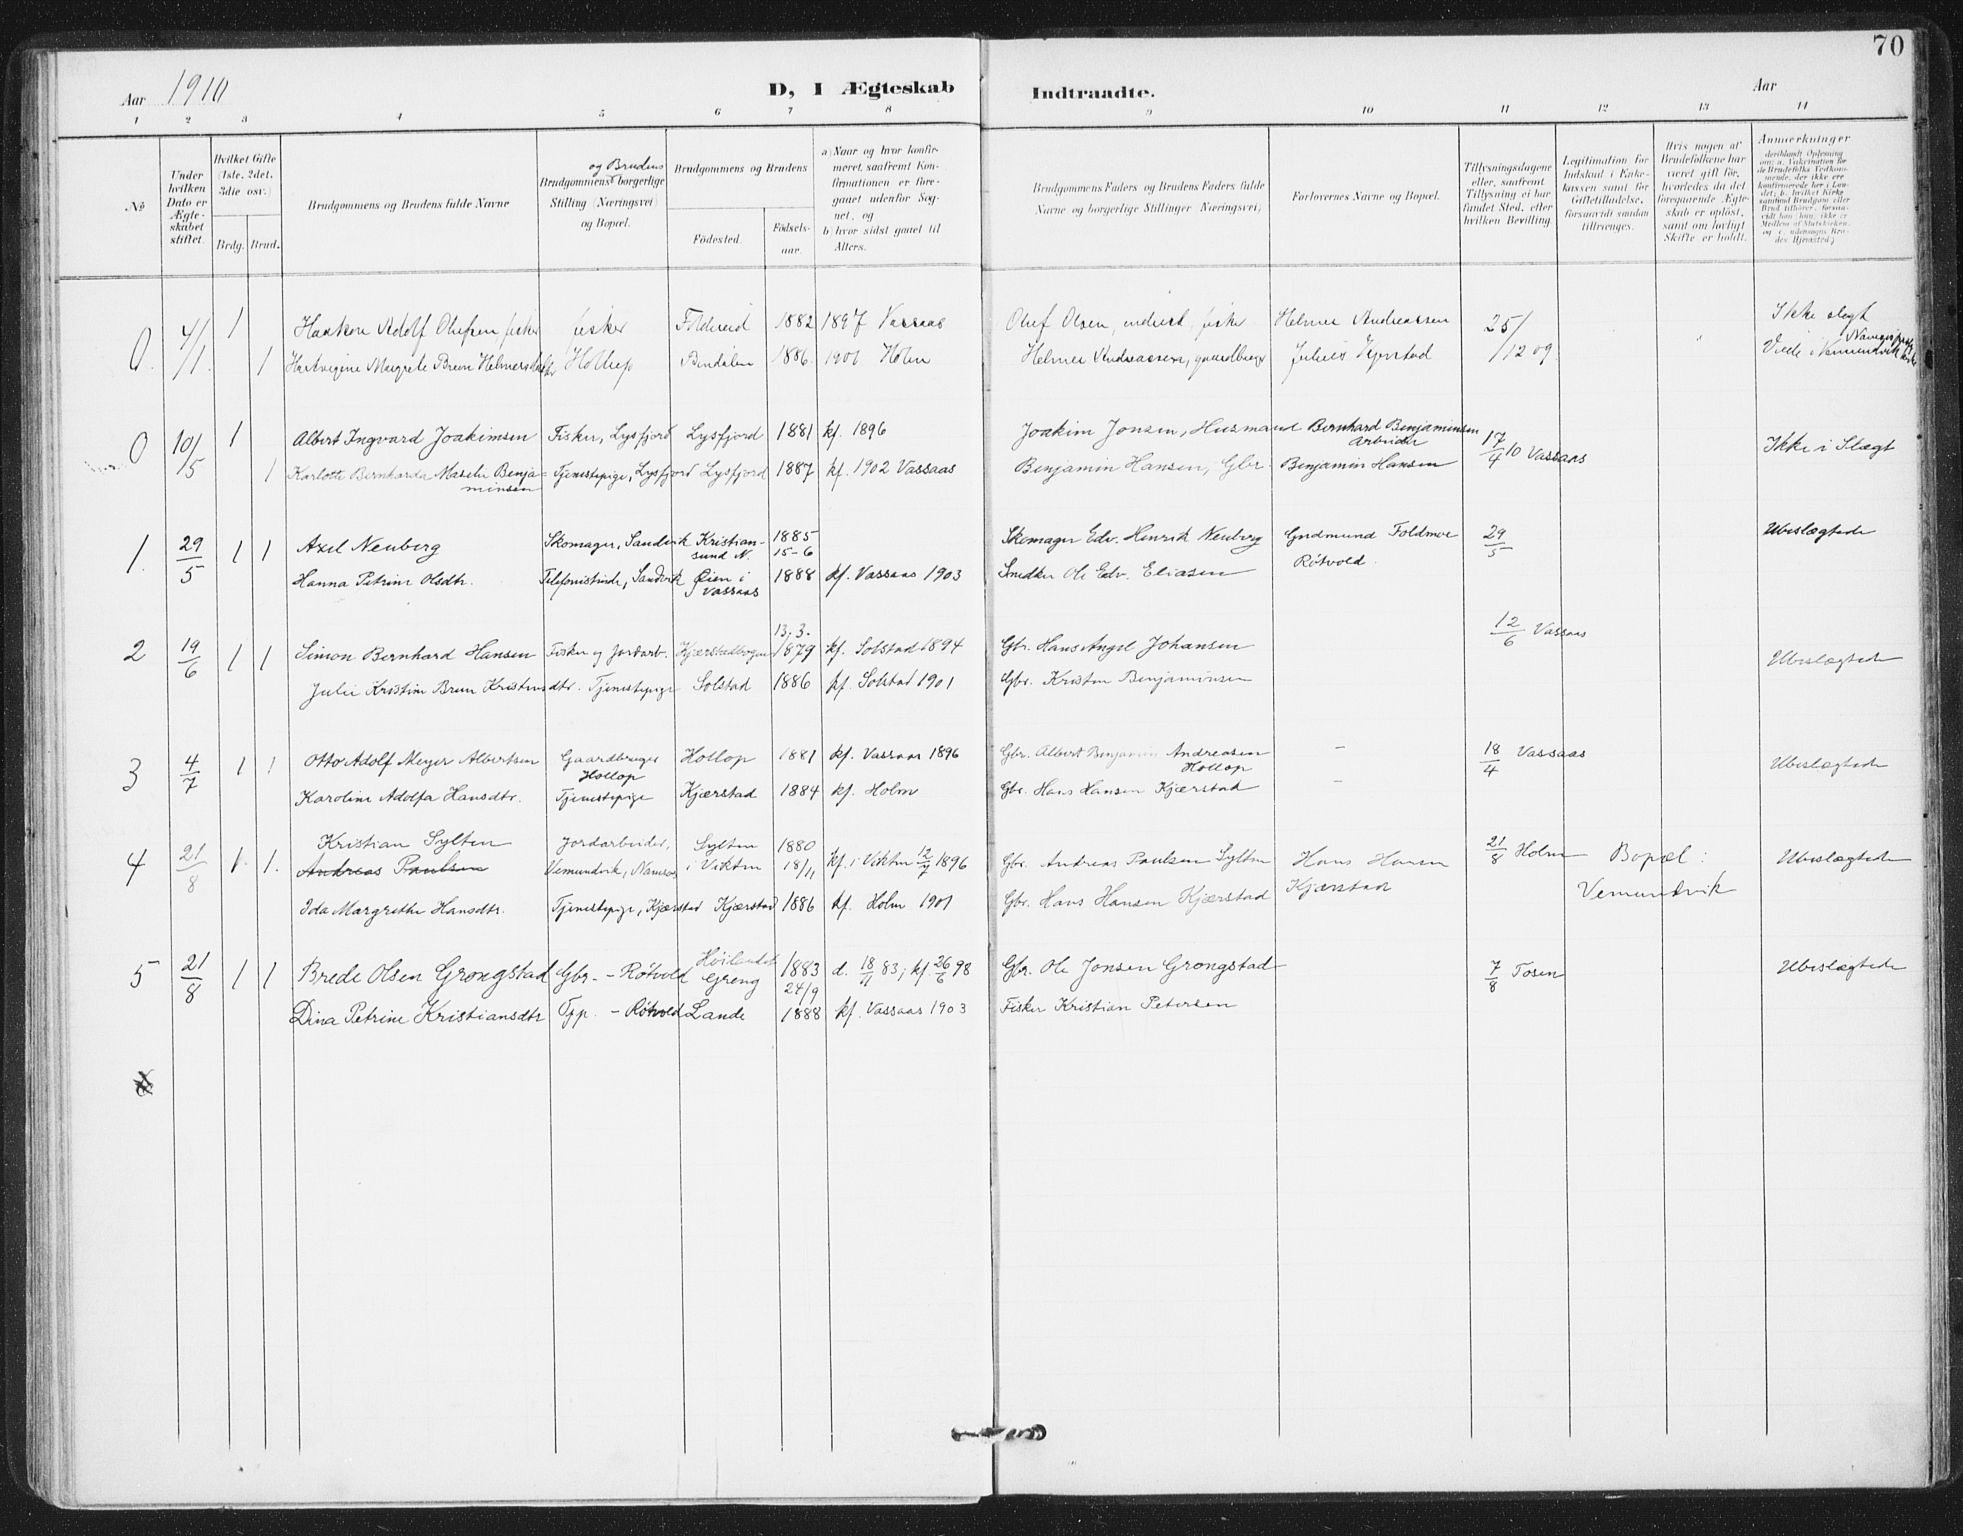 70
Aar 1910 D, I Ægteskab Indtraadte. Aar
1 2 3 4 5 6 7 8 9 10 11 12 13 14
No
Under hvilken Dato er Ægteskabet stiftet.
Hvilket Gifte (1ste, 2det, 3die osv.)
Brdg. Brud.
Brudgommens og Brudens fulde Navne
og Brudens
Brudgommens borgerlige Stilling (Næringsvei) og Bopæl.
Brudgommens og Brudens
Fødested.
Fødselsaar.
a) Naar og hvor konfirmeret, saafremt Konfirmationen er foregaaet udenfor Sognet, og
b) hvor sidst gaaet til Alters.
Brudgommens Faders og Brudens Faders fulde Navne og borgerlige Stillinger (Næringsvei)
Forlovernes Navne og Bopæl.
Tillysningsdagene eller, saafremt Tillysning ei har fundet Sted, efter hvilken Bevilling
Legitimation for Indskud i Enkekassen samt for Giftetilladelse, forsaavidt saadan tiltrænges.
Hvis nogen af Brudefolkene har været gift før, hvorledes da det foregaaende Ægteskab er opløst, samt om lovligt Skifte er holdt.
Anmerkninger
0. 4/1 1 Haakon Adolf Olufsen fisker fisker Foldereid 1882 1897 Vassaas Oluf Olsen, inderst, fisker Helmer Andreassen 25/12 09. Ikke slegt
1 Hartvigine Margrete Brevn Helmersdatter Holtrep Bindalen 1886 1901 Holm Helmer Andreassen, gaardbruger Julius Kjerstad Viede i Vemundvik
0 10/5 1 Albert Ingvard Joakimsen Fisker, Lysfjord Lysfjord 1881 kf. 1896 Joakim Jonsen, Husmand Bernhard Benjaminsen Arbeider 17/4 10 Vassaas Ikke i Slægt
1 Karlotte Bernharda Maselie Benjaminsen Tjenestepige, Lysfjord Lysfjord 1887 kf. 1902 Vassaas Benjamin Hansen, Gbr Benjamin Hansen
1. 29/5 1 1 Axel Neuberg Skomager, Sandvik Kristiansund N. 1885 15-6 Skomager Edv. Henrik Neuberg Gudmund Foldmoe 29/5 Ubeslægtede
Hanna Petrine Olsdtr. Telefonistinde, Sandvik Øien i Vassaas 1888 kf. Vassaas 1903 Snedker Ole Edv. Eliasen Røtvold.
2 19/6 1 1 Simon Bernhard Hansen Fisker og Jordarb. Kjærstadbogen 13.3. 1879 kf. Solstad 1894 Gbr. Hans Angel Johansen 12/6 Vassaas Ubeslægtede
Julie Kristine Brun Kristensdtr. Tjenestepige Solstad 1886 kf. Solstad 1901 Gbr. Kristen Benjaminsen
3 4/7 1 1 Otto Adolf Meyer Albertsen Gaardbruger Hollop Hollop 1881 kf. Vassaas 1896 Gbr. Albert Benjamin Andreasen Hollop – 18/4 Vassaas Ubeslægtede
Karoline Adolfa Hansdtr. Tjenestepige Kjærstad 1884 kf. Holm Gbr. Hans Hansen Kjærstad –
4 21/8 1. 1. Kristian Sylten Jordarbeider, Sylten 1880
Andreas Paulsen Vemundvik, Namsos i Vikten 18/11 kf. i Vikten 12/7 1896 Gbr. Andreas Paulsen Sylten Hans Hansen 21/8 Holm Bopæl: Ubeslægtede
Ida Margrethe Hansdtr. Tjenestepige, Kjærstad Kjærstad 1886 kf. Holm 1901 Gbr. Hans Hansen Kjærstad Kjærstad Vemundvik
5 21/8 1 1 Brede Olsen Grongstad Gbr. – Røtvold Høilandet Grong 1883 24/9 d. 18/11 83; kf. 26/6 98 Gbr. Ole Jonsen Grongstad 7/8 Tosen Ubeslægtede
Dina Petrine Kristiansdtr Opp. – Røtvold Lande 1888 kf. Vassaas 1903 Fisker Kristian Petersen